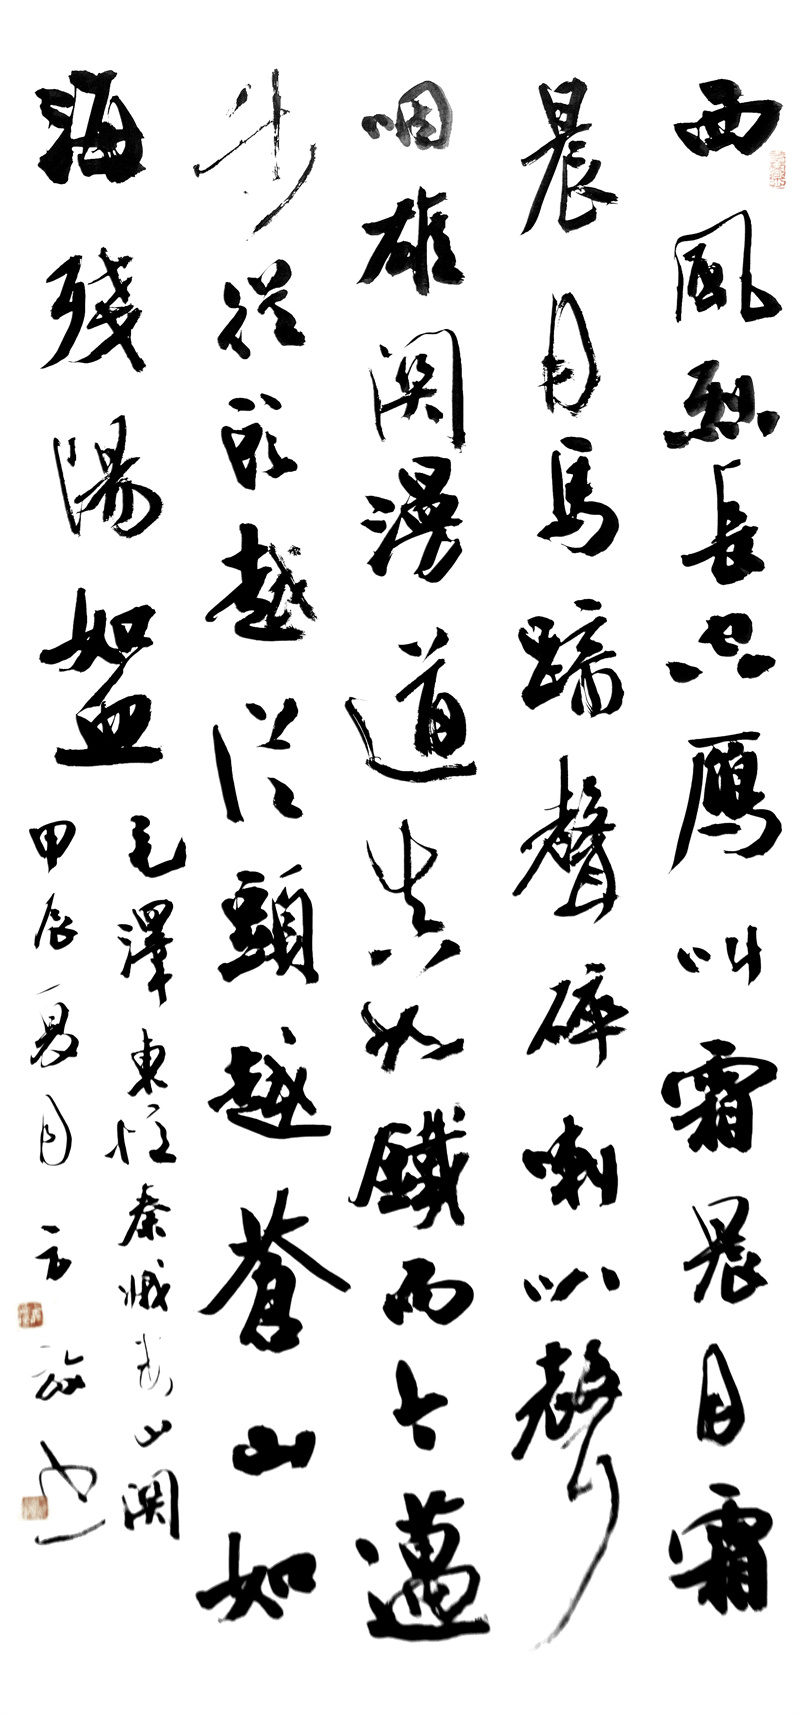 西風烈長空鴈叫霜晨月霜
晨月馬蹄聲碎喇叭聲
咽雄関漫道真如鐵而今邁
步從頭越從頭越蒼山如
海殘陽如血
毛澤東憶秦娥婁山関
甲辰夏月